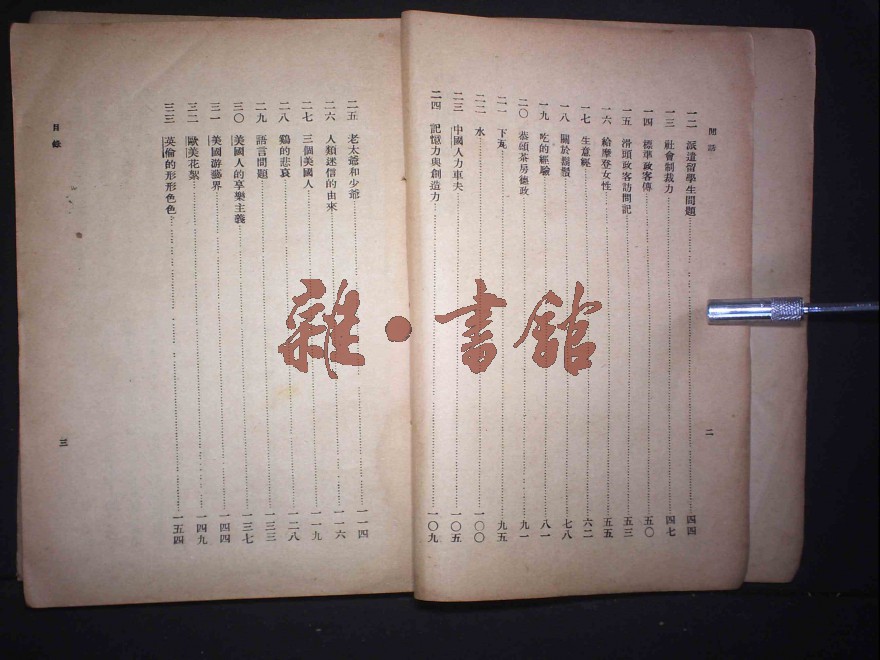 閒話
一二 派遣留學生問題 四四
一三 社會制裁力 四七
一四 標準政客傳 五〇
一五 滑頭政客訪問記 五三
一六 給摩登女性 五五
一七 生意經 六二
一八 關於鬍鬚 七八
一九 吃的經驗 八一
二〇 恭頌茶房德政 九一
二一 下瓦 九五
二二 水 一〇〇
二三 中國人力車夫 一〇五
二四 記憶力與創造力 一〇九
二
二五 老太爺和少爺 一一四
二六 人類迷信的由來 一一六
二七 三個美國人 一一九
二八 鷄的悲哀 一二八
二九 語言問題 一三三
三〇 美國人的享樂主義 一三七
三一 美國游藝界 一四四
三二 歐美花絮 一四九
三三 英倫的形形色色 一五四
目錄
三
雜·書館